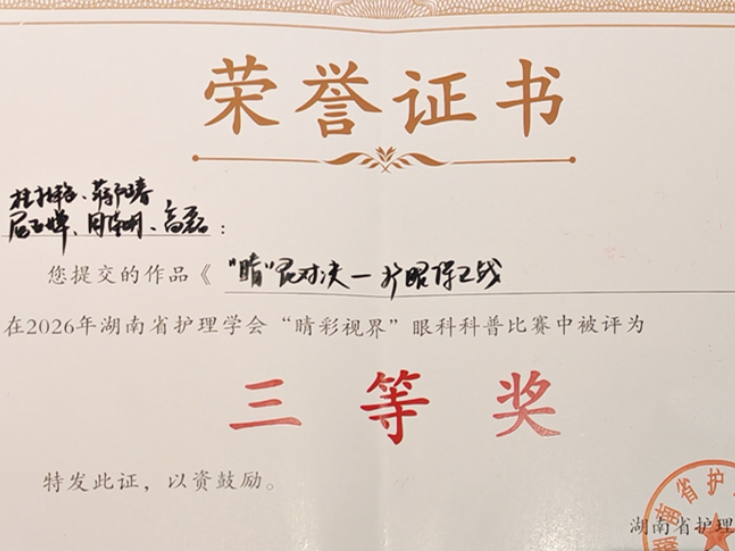 荣誉证书
周南明、高磊:
您提交的作品《 "睛"
在2026年湖南省护理学会“睛彩视界”眼科科普比赛中被评为
三等奖
特发此证，以资鼓励。
湖南省护理
湖南省护